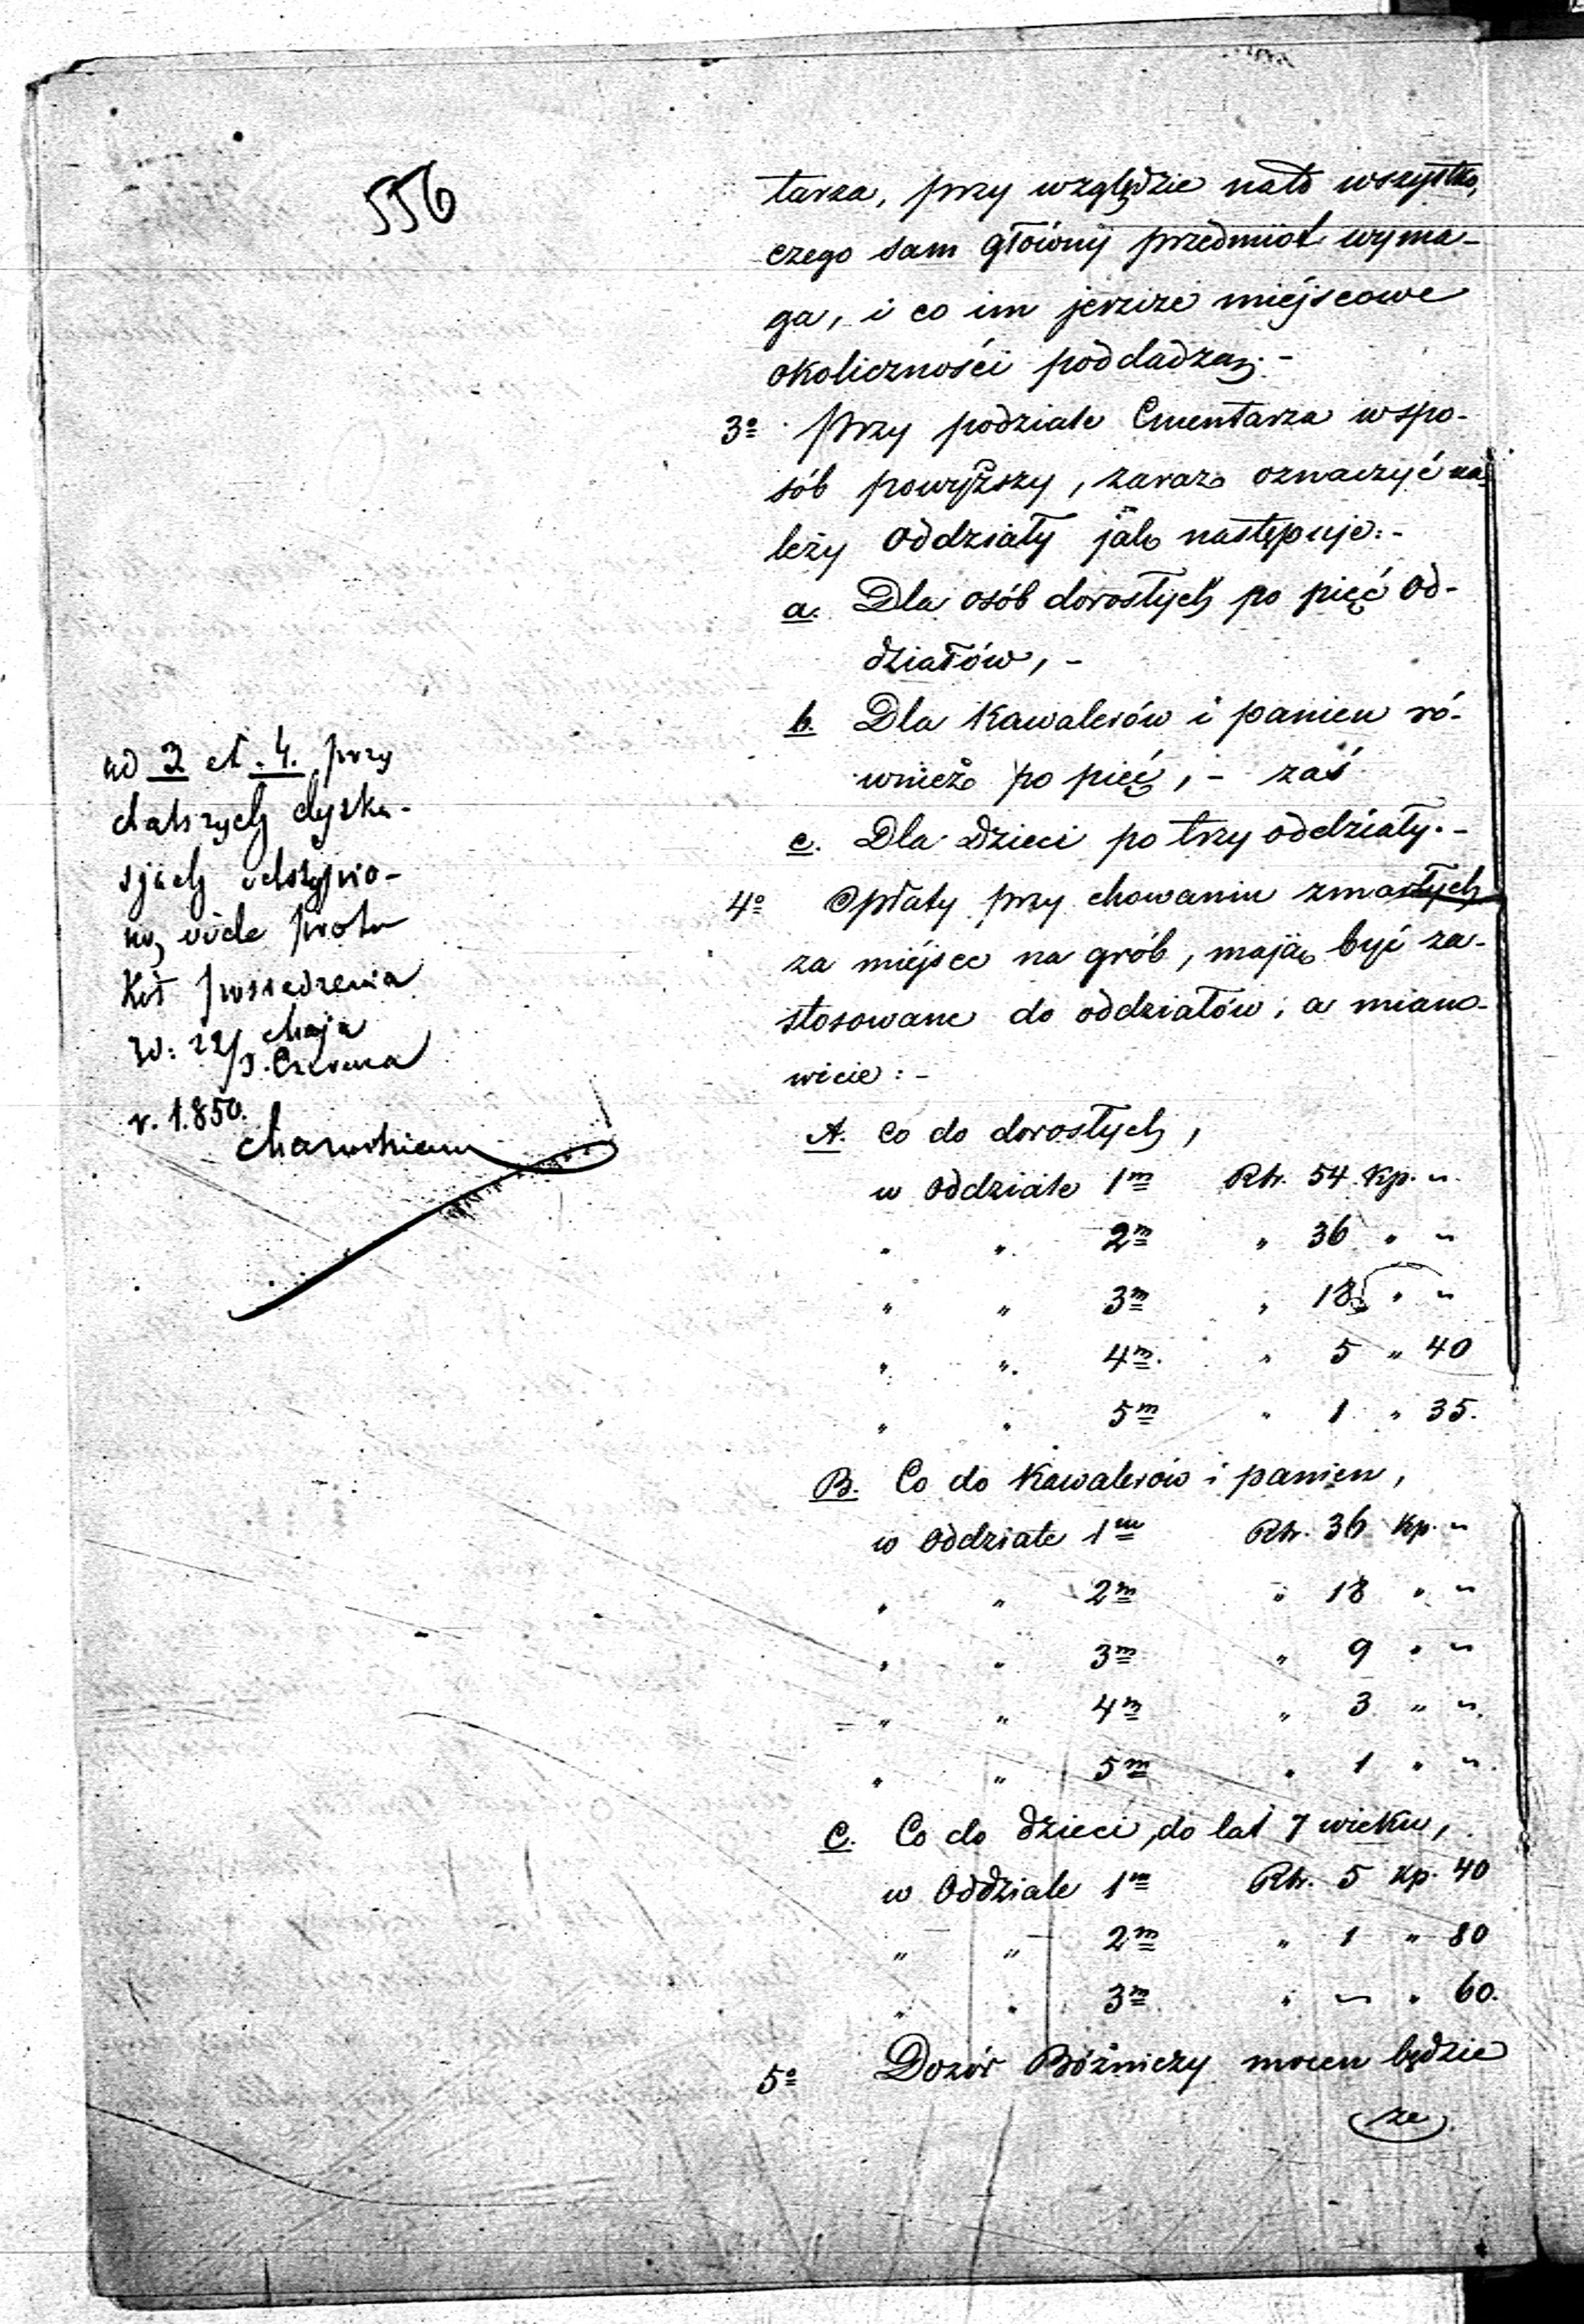 556
tarza, przy względzie nato wszystko,
czego sam główny przedmiot wyma-
ga, i co im jeszcze miéjscowe
okoliczności poddadzą. -
3o Przy podziale Cmentarza wspo-
sób powyższy, zaraz oznaczyć na-
leży Oddziały jak następuje: -
a. Dla osób dorosłych po pięć Od-
działów, -
b. Dla Kawalerów i panien ró-
wnież po pięć, - zaś
c. Dla Dzieci po trzy oddziały. -
4o Opłaty przy chowaniu zmarłych
za miéjsce na grób, mają być za-
stosowane do oddziałów, a miano-
wicie: -
A. Co do dorosłych,
w Oddziale 1m Rbr. 54 Kp. "
" " 2m " 36 " "
" " 3m " 18 " "
" " 4m " 5 " 40
" " 5m " 1 " 35.
B. Co do Kawalerów i panien,
w Oddziale 1m Rbr. 36 Kp. "
" " 2m " 18 " "
" " 3m " 9 " "
" " 4m " 3 " "
" " 5m " 1 " "
C. Co do Dzieci, do lat 7 wieku,
w Oddziale 1m Rbr. 5 Kp. 40
" " 2m " 1 " 80
" " 3m " " " 60.
5o Dozór Bóżniczy mocen będzie
ze
ad 3 et 4. przy
dalszych dysku-
sjach odstąpio-
no, vide
posiedzenia
Maja
Czerwca
r. 1850.